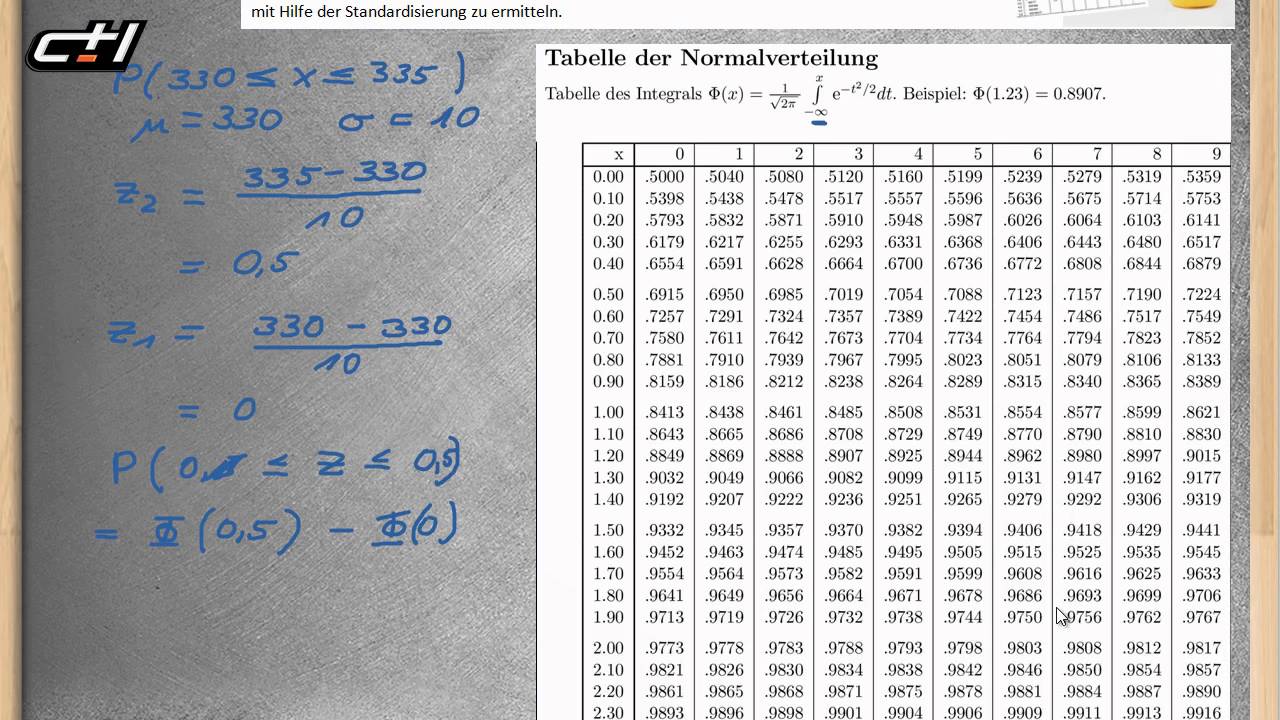 mit Hilfe der Standardisierung zu ermitteln.
P(330 ≤ x ≤ 335)
μ = 330 σ = 10
z₂ = 335-330 / 10
= 0,5
z₁ = 330 - 330 / 10
= 0
P(0, ≤ z ≤ 0,5)
= Φ(0,5) - Φ(0)
Tabelle der Normalverteilung
Tabelle des Integrals Φ(x) = 1/√2π ∫_{-∞}^{x} e^{-t²/2}dt. Beispiel: Φ(1.23) = 0.8907.
x 0 1 2 3 4 5 6 7 8 9
0.00 .5000 .5040 .5080 .5120 .5160 .5199 .5239 .5279 .5319 .5359
0.10 .5398 .5438 .5478 .5517 .5557 .5596 .5636 .5675 .5714 .5753
0.20 .5793 .5832 .5871 .5910 .5948 .5987 .6026 .6064 .6103 .6141
0.30 .6179 .6217 .6255 .6293 .6331 .6368 .6406 .6443 .6480 .6517
0.40 .6554 .6591 .6628 .6664 .6700 .6736 .6772 .6808 .6844 .6879
0.50 .6915 .6950 .6985 .7019 .7054 .7088 .7123 .7157 .7190 .7224
0.60 .7257 .7291 .7324 .7357 .7389 .7422 .7454 .7486 .7517 .7549
0.70 .7580 .7611 .7642 .7673 .7704 .7734 .7764 .7794 .7823 .7852
0.80 .7881 .7910 .7939 .7967 .7995 .8023 .8051 .8079 .8106 .8133
0.90 .8159 .8186 .8212 .8238 .8264 .8289 .8315 .8340 .8365 .8389
1.00 .8413 .8438 .8461 .8485 .8508 .8531 .8554 .8577 .8599 .8621
1.10 .8643 .8665 .8686 .8708 .8729 .8749 .8770 .8790 .8810 .8830
1.20 .8849 .8869 .8888 .8907 .8925 .8944 .8962 .8980 .8997 .9015
1.30 .9032 .9049 .9066 .9082 .9099 .9115 .9131 .9147 .9162 .9177
1.40 .9192 .9207 .9222 .9236 .9251 .9265 .9279 .9292 .9306 .9319
1.50 .9332 .9345 .9357 .9370 .9382 .9394 .9406 .9418 .9429 .9441
1.60 .9452 .9463 .9474 .9485 .9495 .9505 .9515 .9525 .9535 .9545
1.70 .9554 .9564 .9573 .9582 .9591 .9599 .9608 .9616 .9625 .9633
1.80 .9641 .9649 .9656 .9664 .9671 .9678 .9686 .9693 .9699 .9706
1.90 .9713 .9719 .9726 .9732 .9738 .9744 .9750 .9756 .9762 .9767
2.00 .9773 .9778 .9783 .9788 .9793 .9798 .9803 .9808 .9812 .9817
2.10 .9821 .9826 .9830 .9834 .9838 .9842 .9846 .9850 .9854 .9857
2.20 .9861 .9865 .9868 .9871 .9875 .9878 .9881 .9884 .9887 .9890
2.30 .9893 .9896 .9898 .9901 .9904 .9906 .9909 .9911 .9913 .9916